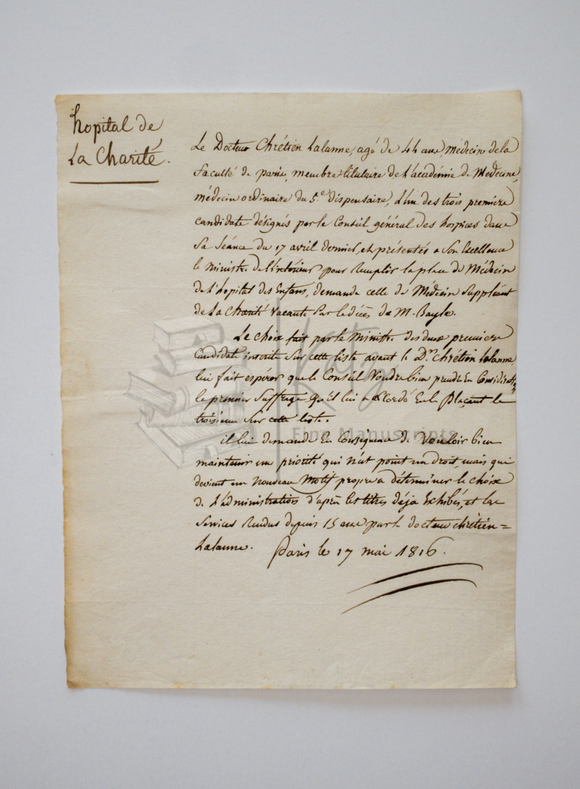 hopital de
La Charité.
Le Docteur Chrétien Lalanne, agé de 44 ans medecin de la
faculté de paris, membre titulaire de L'académie de Medecine
médecin ordinaire du 5e dispensaire, L'un des trois premiers
candidats désignés par le Conseil général des hospices dans
Sa Séance du 17 avril dernier, et présentés a Son Excellence
le Ministre de L'intérieur pour remplir la place de Médecin
de L'hopital des Enfans, demande celle de Médecin Suppléant
de La Charité Vacante par le décès de M. Bayle.
Le choix fait par le Ministre des deux premiers
Candidats inscrits Sur cette liste avant le Dr Chrétien Lalanne
lui fait esperer que le Conseil Voudra bien prendre En Considération
le premier Suffrage qu'il lui a accordé En le plaçant le
troisieme Sur cette liste.
il lui demande En Consequence de Vouloir bien
maintenir une priorité qui n'est point un droit, mais qui
devient un nouveau Motif propre a déterminer le choix
de L'administration d'après les titres déja Exhibés, et les
Services Rendus depuis 15 ans par le docteur chrétien=
Lalanne. Paris le 17 mai 1816.
Katz
Fine Manuscripts